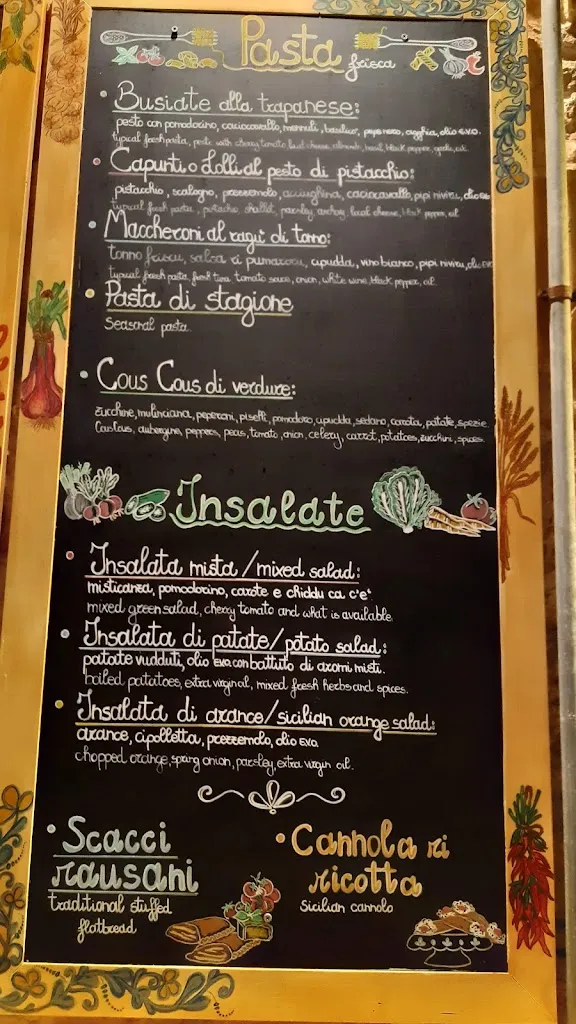 Pasta frisca
Busiate alla trapanese:
pesto con pomodorino, caciocavallo, mennuli, basilico, pepe nero, agghia, olio e.v.o.
typical fresh pasta, pesto with cherry tomato, local cheese, almonds, basil, black pepper, garlic, oil.
Capunti o Lolli al pesto di pistacchio:
pistacchio, scalogno, prezzemolo, acciughina, caciocavallo, pipi nivuru, olio evo
typical fresh pasta, pistachio, shallot, parsley, anchovy, local cheese, black pepper, oil
Maccheroni al ragù di tonno:
tonno friscu, salsa ri pumaroru, cipudda, vino bianco, pipi nivuru, olio evo
typical fresh pasta, fresh tuna, tomato sauce, onion, white wine, black pepper, oil
Pasta di stagione
Seasonal pasta.
Cous Cous di verdure:
zucchine, mulinciana, peperoni, piselli, pomodoro, cipudda, sedano, carota, patate, spezie.
CousCous, aubergine, peppers, peas, tomato, onion, celery, carrot, potatoes, zucchini, spices.
Insalate
Insalata mista / mixed salad:
misticanza, pomodorino, carote e chiddu ca c'è
mixed green salad, cherry tomato and what is available
Insalata di patate/potato salad:
patate vudduti, olio evo con battuto di aromi misti.
boiled potatoes, extra virgin oil, mixed fresh herbs and spices.
Insalata di arance/sicilian orange salad:
arance, cipolletta, prezzemolo, olio evo.
chopped orange, spring onion, parsley, extra virgin oil.
Scacci rausani
traditional stuffed
flatbread
Cannola ri
ricotta
Sicilian cannolo